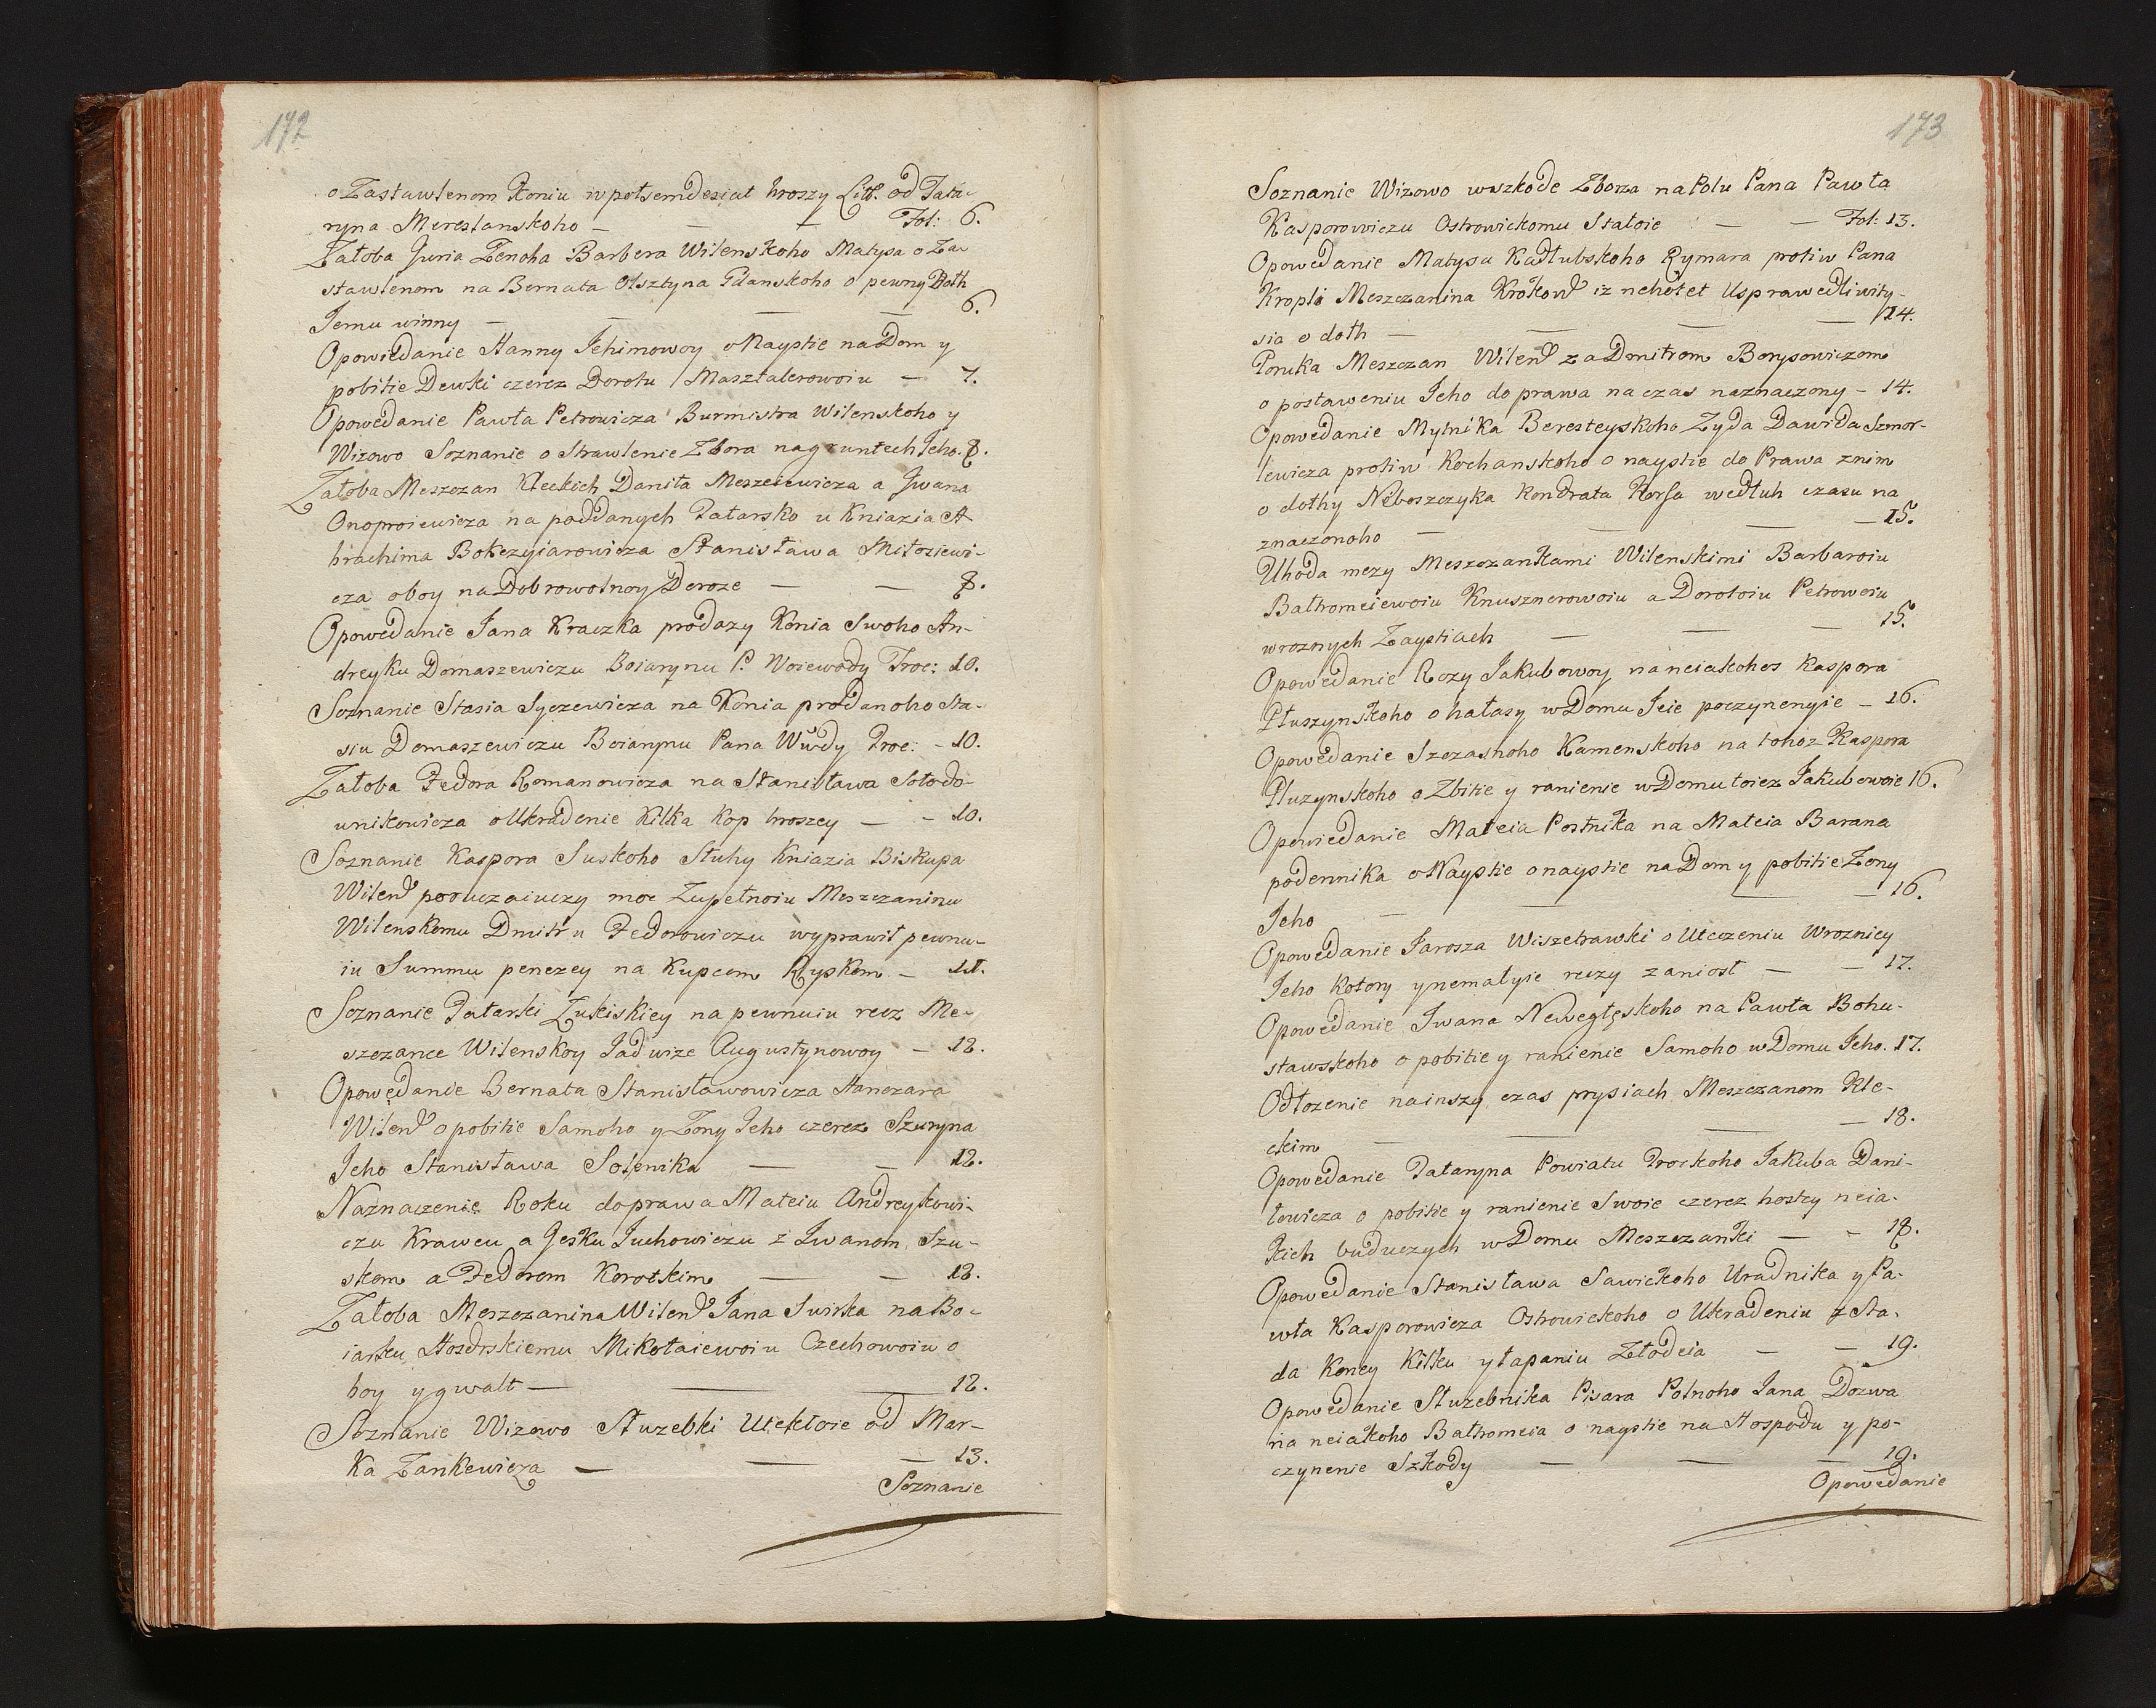 172
o Zastawlenom Koniu w połsemdesiat hroszy Litt. od Tata-
ryna Merestanskoho — — — Fol: 6.
Załoba Juria Zenoha Barbera Wilenskoho Matysa o Za-
stawlenom na Bernata Olsztyna Gdanskoho o pewny Dołh
Jemu winny — — — — 6.
Opowiedanie Hanny Jehimowoy o Nayście na Dom y
pobitie Dewki czerez Dorotu Masztalerowoiu — 7.
Opowedanie Pawła Petrowicza Burmistra Wilenskoho y
Wizowo Soznanie o Strawlenie Zbora na gruntech Jeho. 8.
Załoba Meszczan Kleckich Daniła Meszeiewicza a Jwana
Onoproiewicza na poddanych Tatarsko u Kniazia A-
brachima Bokczyiarowicza Stanisława Miłosiewi-
cza o boy na Dobrowolnoy Doroze — — 8.
Opowedanie Jana Kraczka prodazy Konia Swoho An-
dreyku Domaszewiczu Boiarynu P. Woiewody Troc: 10.
Soznanie Stasia Syczewicza na Konia prodanoho Sta-
siu Domaszewiczu Boiarynu Pana Wwdy Troc: - 10.
Załoba Fedora Romanowicza na Stanisława Sołodo-
unikowicza o Ukradenie Kilka Kop hroszey — - 10.
Soznanie Kaspora Suskoho Sluhy Kniazia Biskupa
Wilen poruczaiuczy moc Zupełnoiu Meszczaninu
Wilenskomu Dmitru Fedorowiczu wyprawit pewnu-
iu Summu penezey na Kupcom Ryskom — 11.
Soznanie Tatarki Zukiskiey na pewnuiu recz Me-
szczance Wilenskoy Jadwize Augustynowoy — 12.
Opowedanie Bernata Stanisławowicza Hanczara
Wilen o pobitie Samoho y Zony Jeho czerez Szuryna
Jeho Stanisława Solenika — — 12.
Naznaczenie Roku do prawa Mateiu Andreykowi-
czu Krawcu a Jesku Juchowiczu z Jwanom Szu-
skom a Fedorom Korotkim — — 12.
Załoba Meszczanina Wilen Jana Swirka na Bo-
iarku Hosdrskiemu Mikołaiewoiu Czechowoiu o
boy y gwalt — — — 12.
Soznanie Wizowo Słuzebki Utekłoie od Mar-
ka Zankewicza — — — 13.
Soznanie
173
Soznanie Wizowo w szkode Zboza na Polu Pana Pawła
Kasporowiczu Ostrowickomu Stałoie — — Fol: 13.
Opowedanie Matysa Kadłubskoho Rymara protiw Pana
Kropli Meszczanina Krokow iz nehotet Usprawedliwity-
sia o dołh — — — — 14.
Poruka Meszczan Wilen za Dmitrom Borysowiczom
o postaweniu Jeho do prawa na czas naznaczony - 14.
Opowedanie Mytnika Beresteyskoho Zyda Dawida Szmor-
lewicza protiw Kochanskoho o nayście do Prawa z nim
o dołhy Neboszczyka Kondrata Korsa wedłuh czasu na
znaczonoho — — — — 15.
Uhoda mezy Meszczankami Wilenskimi Barbaroiu
Bałtromeiewoiu Knusznerowoiu a Dorotoiu Petrowoiu
w roznych Zaystiach — — — 15.
Opowedanie Rozy Jakubowoy na neiakohos Kaspora
Płuszynskoho o hałasy w Domu Jeie poczynenyie — 16.
Opowedanie Szczasnoho Kamenskoho na tohoz Kaspora
Pluzynskoho o Zbitie y ranienie w Domu toiez Jakubowoie 16.
Opowiedanie Mateia Postnika na Mateia Barana
podennika o Nayście o nayście na Dom y pobitie Zony
Jeho — — — — 16.
Opowedanie Jarosza Wiszetrawki o Uteczeniu Wroznicy
Jeho kotory y nemałyie reczy zaniosł — — 17.
Opowedanie Jwana Neweglęskoho na Pawła Bohu-
sławskoho o pobitie y ranienie Samoho w Domu Jeho. 17.
Odłozenie na inszy czas prysiach Meszczanom Kle-
ckim — — — — 18.
Opowedanie Tataryna Powiatu Trockoho Jakuba Dani-
łowicza o pobitie y ranienie Swoie czerez hostey neia-
kich buduczych w Domu Meszczanki — - 18.
Opowedanie Stanisława Sawickoho Uradnika y Pa-
wła Kasporowicza Ostrowickoho o Ukradeniu z Sta-
da Koney Kilku y łapaniu Złodeia — — 19.
Opowedanie Słuzebnika Pisara Polnoho Jana Dozwa
na neiakoho Bałtromeia o nayście na Hospodu y po-
czynenie Szkody — — — 19.
Opowedanie